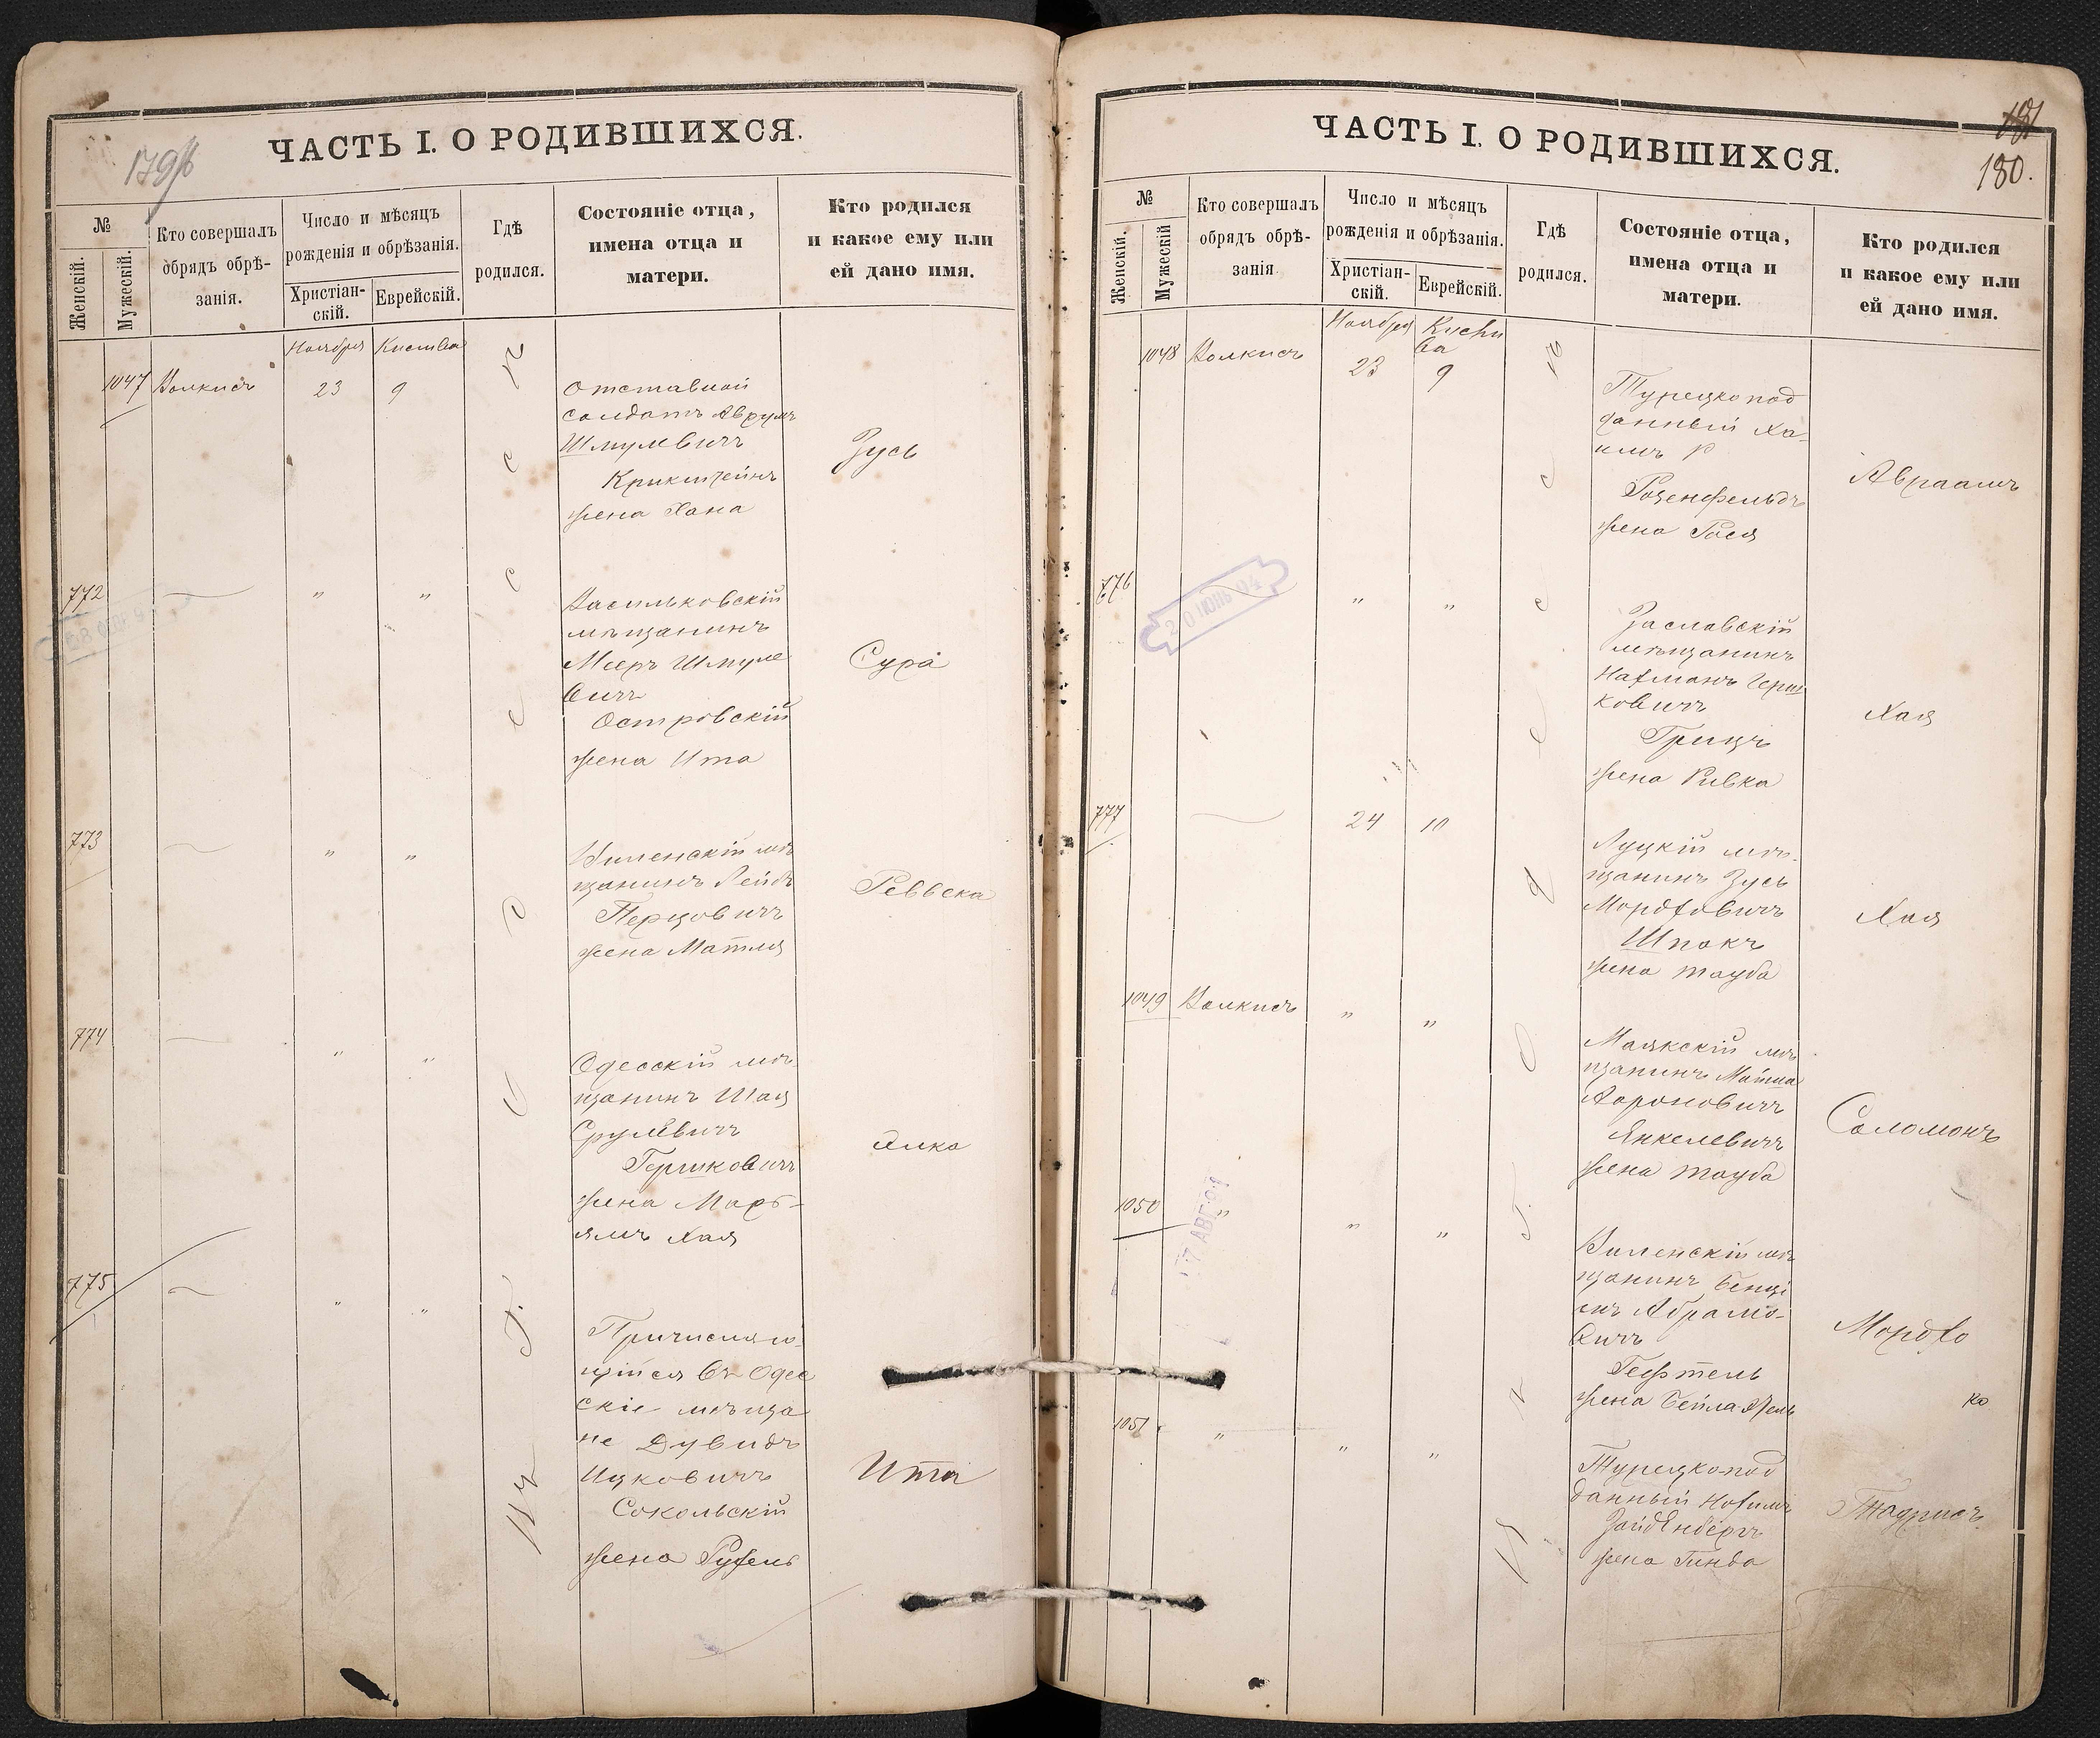 ЧАСТЬ I. О РОДИВШИХСЯ.
№
Женскій.
Мужескій.
Кто совершалъ
обрядъ обрѣ-
занія.
Число и мѣсяцъ
рожденія и обрѣзанія.
Христіан-
скій.
Еврейскій.
Гдѣ
родился.
Состояніе отца,
имена отца и
матери.
Кто родился
и какое ему или
ей дано имя.
Ноября Кислива
1047 Волкисъ 23 9
Отставной
солдатъ Аврумъ
Шмулевичъ
Крикштейнъ
жена Хана
Зусь
772 " "
Васильковскій
мѣщанинъ
Мееръ Шмуле
вичъ
Островскій
жена Ита
Сура
773 " "
Виленскій мѣ
щанинъ Лейбъ
Перцовичъ
жена Матля
Реввека
774 " "
Одесскій мѣ
щанинъ Шая
Срулевичъ
Гершковичъ
жена Марь-
ямъ Хая
Элка
775 " "
Причисляю-
щійся въ Одес
скіе мѣща
не Дувидъ
Ицковичъ
Сокольскій
жена Рухель
Ита
ЧАСТЬ I. О РОДИВШИХСЯ.
181
180.
№
Женскій.
Мужескій
Кто совершалъ
обрядъ обрѣ-
занія
Число и мѣсяцъ
рожденія и обрѣзанія.
Христіан-
скій.
Еврейскій.
Гдѣ
родился.
Состояніе отца,
имена отца и
матери.
Кто родился
и какое ему или
ей дано имя.
Ноября Кисли
ва
1048 Волкисъ 23 9
Турецкопод
данный Ха-
имъ
Розенфельдъ
жена Рося
Авраамъ
776 " "
20 ІЮНЬ 94
Заславскій
мѣщанинъ
Нахманъ Герш
ковичъ
Грицъ
жена Ривка
Хая
777 24 10
Луцкій мѣ-
щанинъ Зусь
Мордховичъ
Шпакъ
жена Тауба
Хая
1049 Волкисъ " "
Маякскій мѣ
щанинъ
Аароновичъ
Янкелевичъ
жена Тауба
Соломонъ
1050 " " "
Виленскій мѣ
щанинъ Бенці
онъ Абрамо-
вичъ
Гефтель
жена Бейла
Мордхо
ко
1051 " " "
Турецкопод
данный
Зайденбергъ
жена Гинда